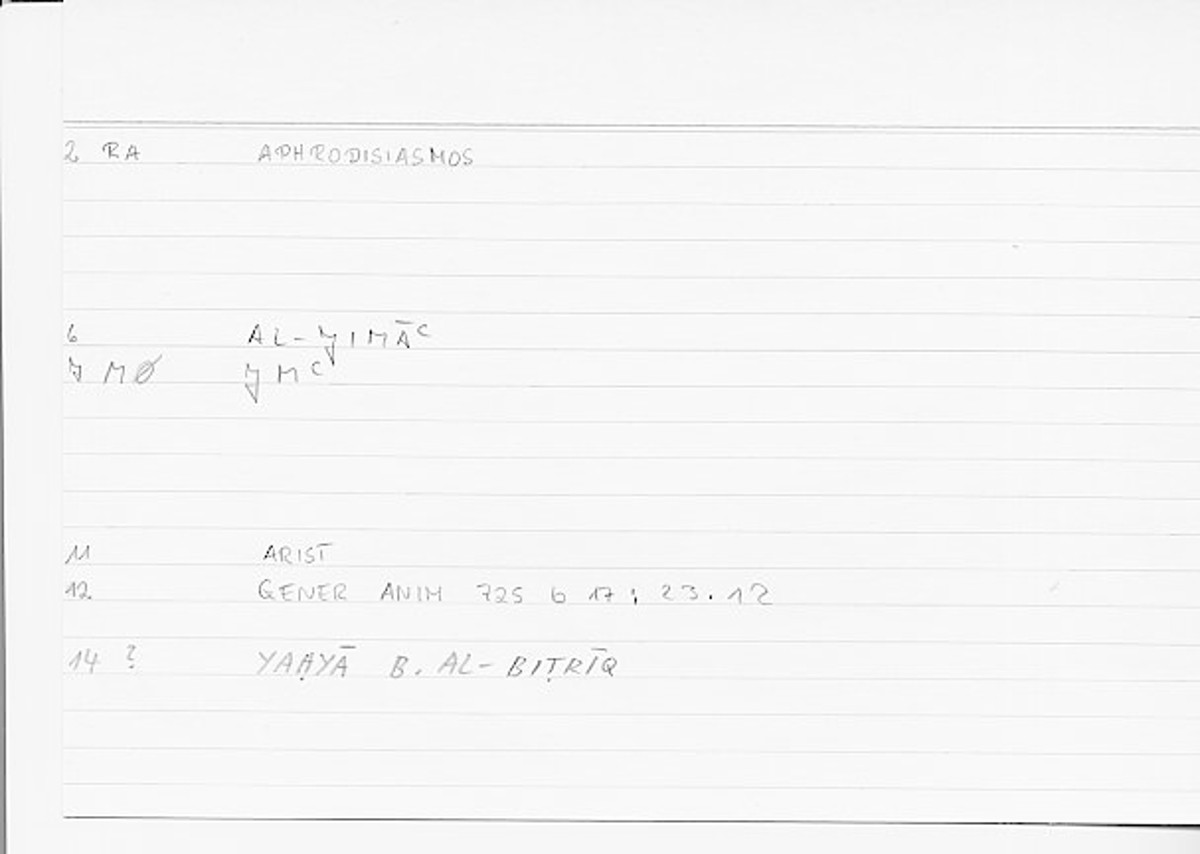 2 RA APHRODISIASMOS
6 AL-ǦIMĀʿ
7 MØ ǦMʿ
11 ARIST
12 GENER ANIM 725 b 17; 23.12
14 ? YAḤYĀ B. AL-BIṬRĪQ